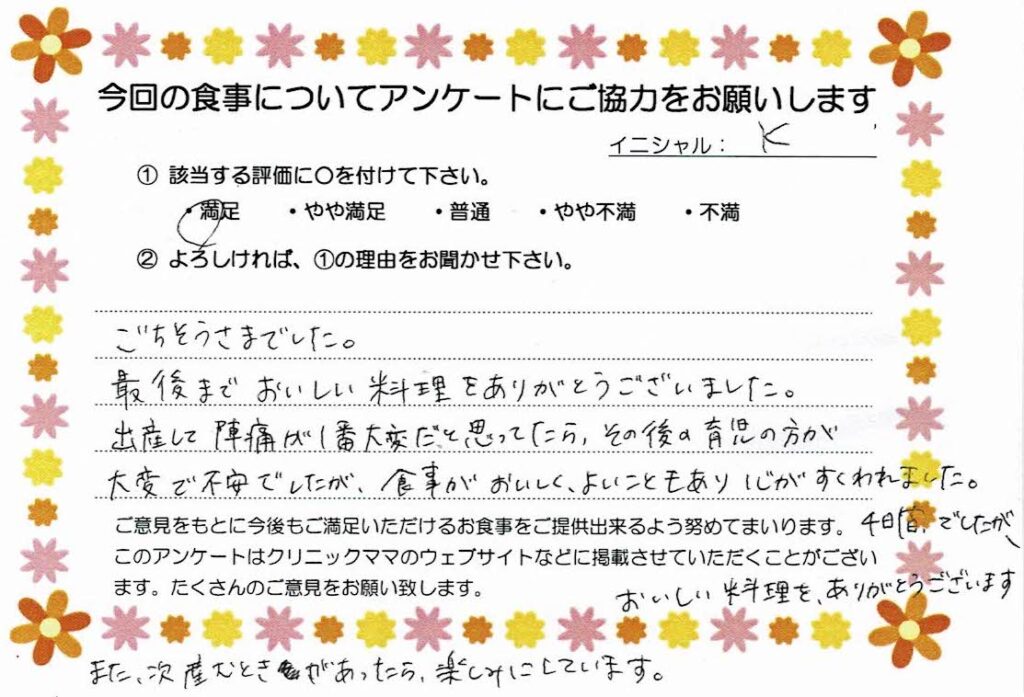 今回の食事についてアンケートにご協力をお願いします
イニシャル： K
① 該当する評価に〇を付けて下さい。
・満足 ・やや満足 ・普通 ・やや不満 ・不満
② よろしければ、①の理由をお聞かせ下さい。
ごちそうさまでした。
最後まで おいしい 料理をありがとうございました。
出産して 陣痛が1番大変だと思ってたら、その後の育児の方が
大変で不安でしたが、食事が おいしく、よいこともあり 心がすくわれました。
4日間、でしたが
おいしい 料理を、ありがとうございます
ご意見をもとに今後もご満足いただけるお食事をご提供出来るよう努めてまいります。
このアンケートはクリニックママのウェブサイトなどに掲載させていただくことがござい
ます。たくさんのご意見をお願い致します。
また、次 産むときがあったら、楽しみにしています。